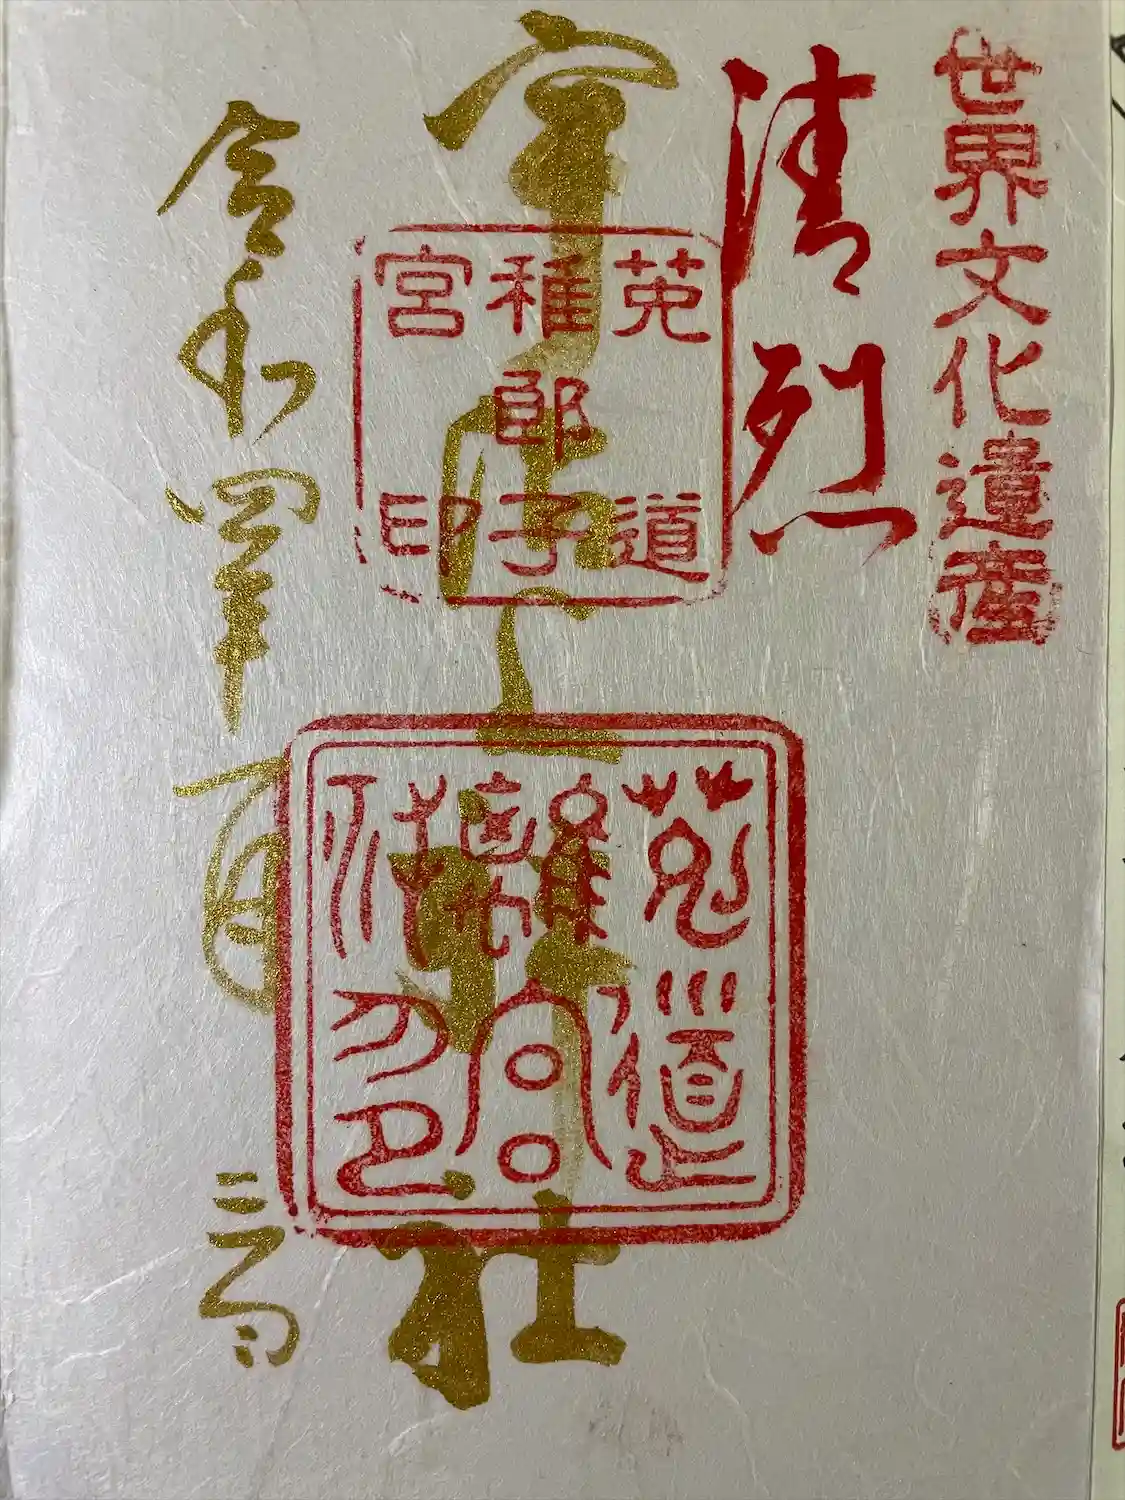 世界文化遺産
清烈
宇治上神社
莵道
稚郎子
宮印
莵道
離宮
印
令和四年一月三日